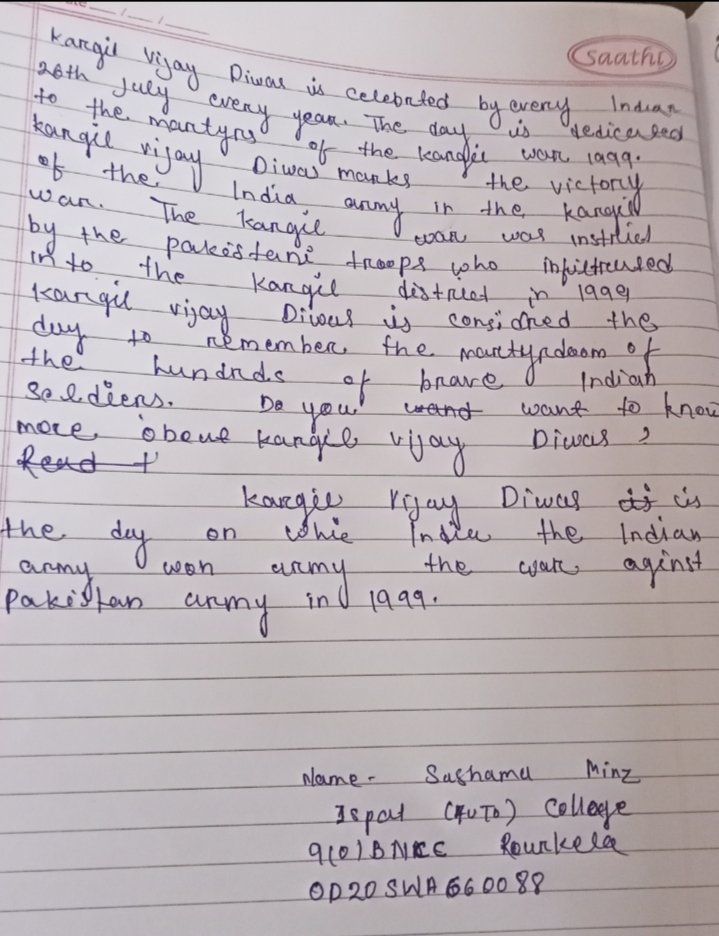 Saathi
Kargil Vijay Diwas is celebrated by every Indian
26th July every year. The day is dedicated
to the martyrs of the Kargil war 1999.
Kargil vijay Diwas marks the victory
of the India army in the Kargil
war. The Kargil war was
by the pakistani troops who infiltrated
into the Kargil district in 1999
Kargil vijay Diwas is considred the
day to remember the martyrdoom of
the hundrds of brave Indian
Soldiers. Do you wand want to know
more obout Kargil vijay Diwas ?
Read t
Kargil Vijay Diwas it is
the day on whic India the Indian
army won army the war aginst
Pakistan army in 1999.
Name - Sushama Minz
Ispat (AUTO) College
9(O)BNCC Rourkela
OD20SWA660088